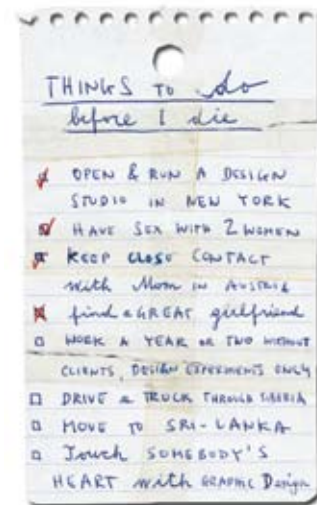 THINGS TO do
before I die
OPEN & RUN A DESIGN
STUDIO IN NEW YORK
HAVE SEX WITH 2 WOMEN
KEEP CLOSE CONTACT
with Mom IN AUSTRIA
find a GREAT girlfriend
WORK A YEAR OR TWO WITHOUT
CLIENTS, DESIGN EXPERIMENTS ONLY
DRIVE A TRUCK THROUGH SIBERIA
MOVE TO SRI-LANKA
Touch SOMEBODY'S
HEART with GRAPHIC Design